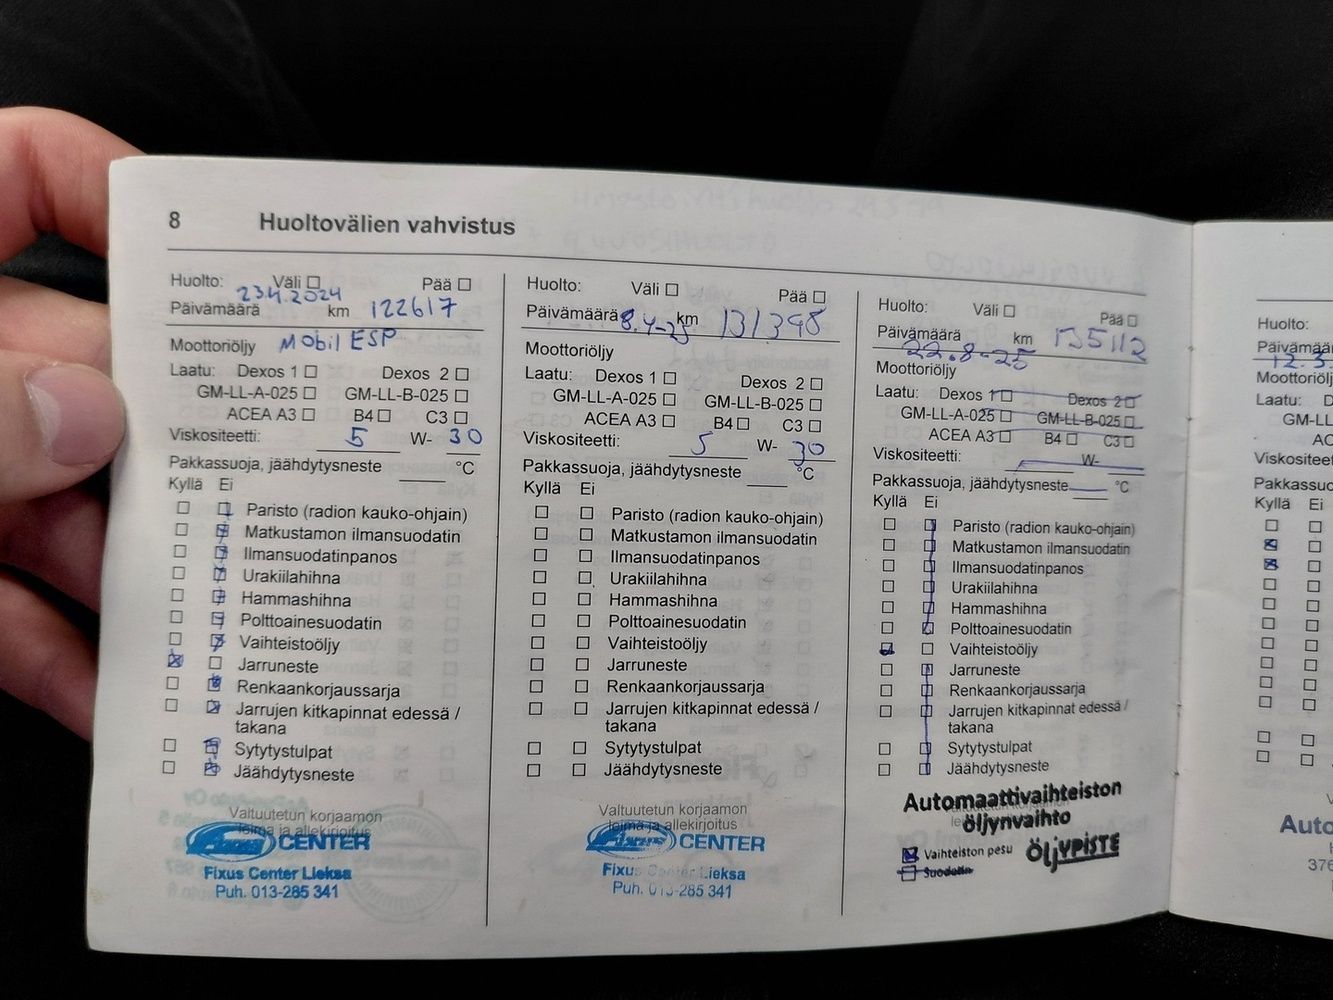 8 Huoltovälien vahvistus
Huolto: Väli ☐ Pää ☐
23.4.2024
Päivämäärä km 122617
Moottoriöljy Mobil ESP
Laatu: Dexos 1 ☐ Dexos 2 ☐
GM-LL-A-025 ☐ GM-LL-B-025 ☐
ACEA A3 ☐ B4 ☐ C3 ☐
Viskositeetti: 5 W- 30
Pakkassuoja, jäähdytysneste °C
Kyllä Ei
Paristo (radion kauko-ohjain)
Matkustamon ilmansuodatin
Ilmansuodatinpanos
Urakiilahihna
Hammashihna
Polttoainesuodatin
Vaihteistoöljy
Jarruneste
Renkaankorjaussarja
Jarrujen kitkapinnat edessä /
takana
Sytytystulpat
Jäähdytysneste
Valtuutetun korjaamon
leima ja allekirjoitus
Fixus CENTER
Fixus Center Lieksa
Puh. 013-285 341
Huolto: Väli ☐ Pää ☐
Päivämäärä 8.4-25 km 131398
Moottoriöljy
Laatu: Dexos 1 ☐ Dexos 2 ☐
GM-LL-A-025 ☐ GM-LL-B-025 ☐
ACEA A3 ☐ B4 ☐ C3 ☐
Viskositeetti: 5 W- 30
Pakkassuoja, jäähdytysneste °C
Kyllä Ei
Paristo (radion kauko-ohjain)
Matkustamon ilmansuodatin
Ilmansuodatinpanos
Urakiilahihna
Hammashihna
Polttoainesuodatin
Vaihteistoöljy
Jarruneste
Renkaankorjaussarja
Jarrujen kitkapinnat edessä /
takana
Sytytystulpat
Jäähdytysneste
Valtuutetun korjaamon
leima ja allekirjoitus
Fixus CENTER
Fixus Center Lieksa
Puh. 013-285 341
Huolto: Väli ☐ Pää ☐
Päivämäärä km 135112
22.8-25
Moottoriöljy
Laatu: Dexos 1 ☐ Dexos 2 ☐
GM-LL-A-025 ☐ GM-LL-B-025 ☐
ACEA A3 ☐ B4 ☐ C3 ☐
Viskositeetti: W-
Pakkassuoja, jäähdytysneste °C
Kyllä Ei
Paristo (radion kauko-ohjain)
Matkustamon ilmansuodatin
Ilmansuodatinpanos
Urakiilahihna
Hammashihna
Polttoainesuodatin
Vaihteistoöljy
Jarruneste
Renkaankorjaussarja
Jarrujen kitkapinnat edessä /
takana
Sytytystulpat
Jäähdytysneste
Automaattivaihteiston
öljynvaihto
Vaihteiston pesu ÖLJYPISTE
Suodatin
Huolto:
Päivämäär
12.3
Moottoriölj
Laatu:
GM-LL
AC
Viskositeet
Pakkassuo
Kyllä Ei
Auto
376